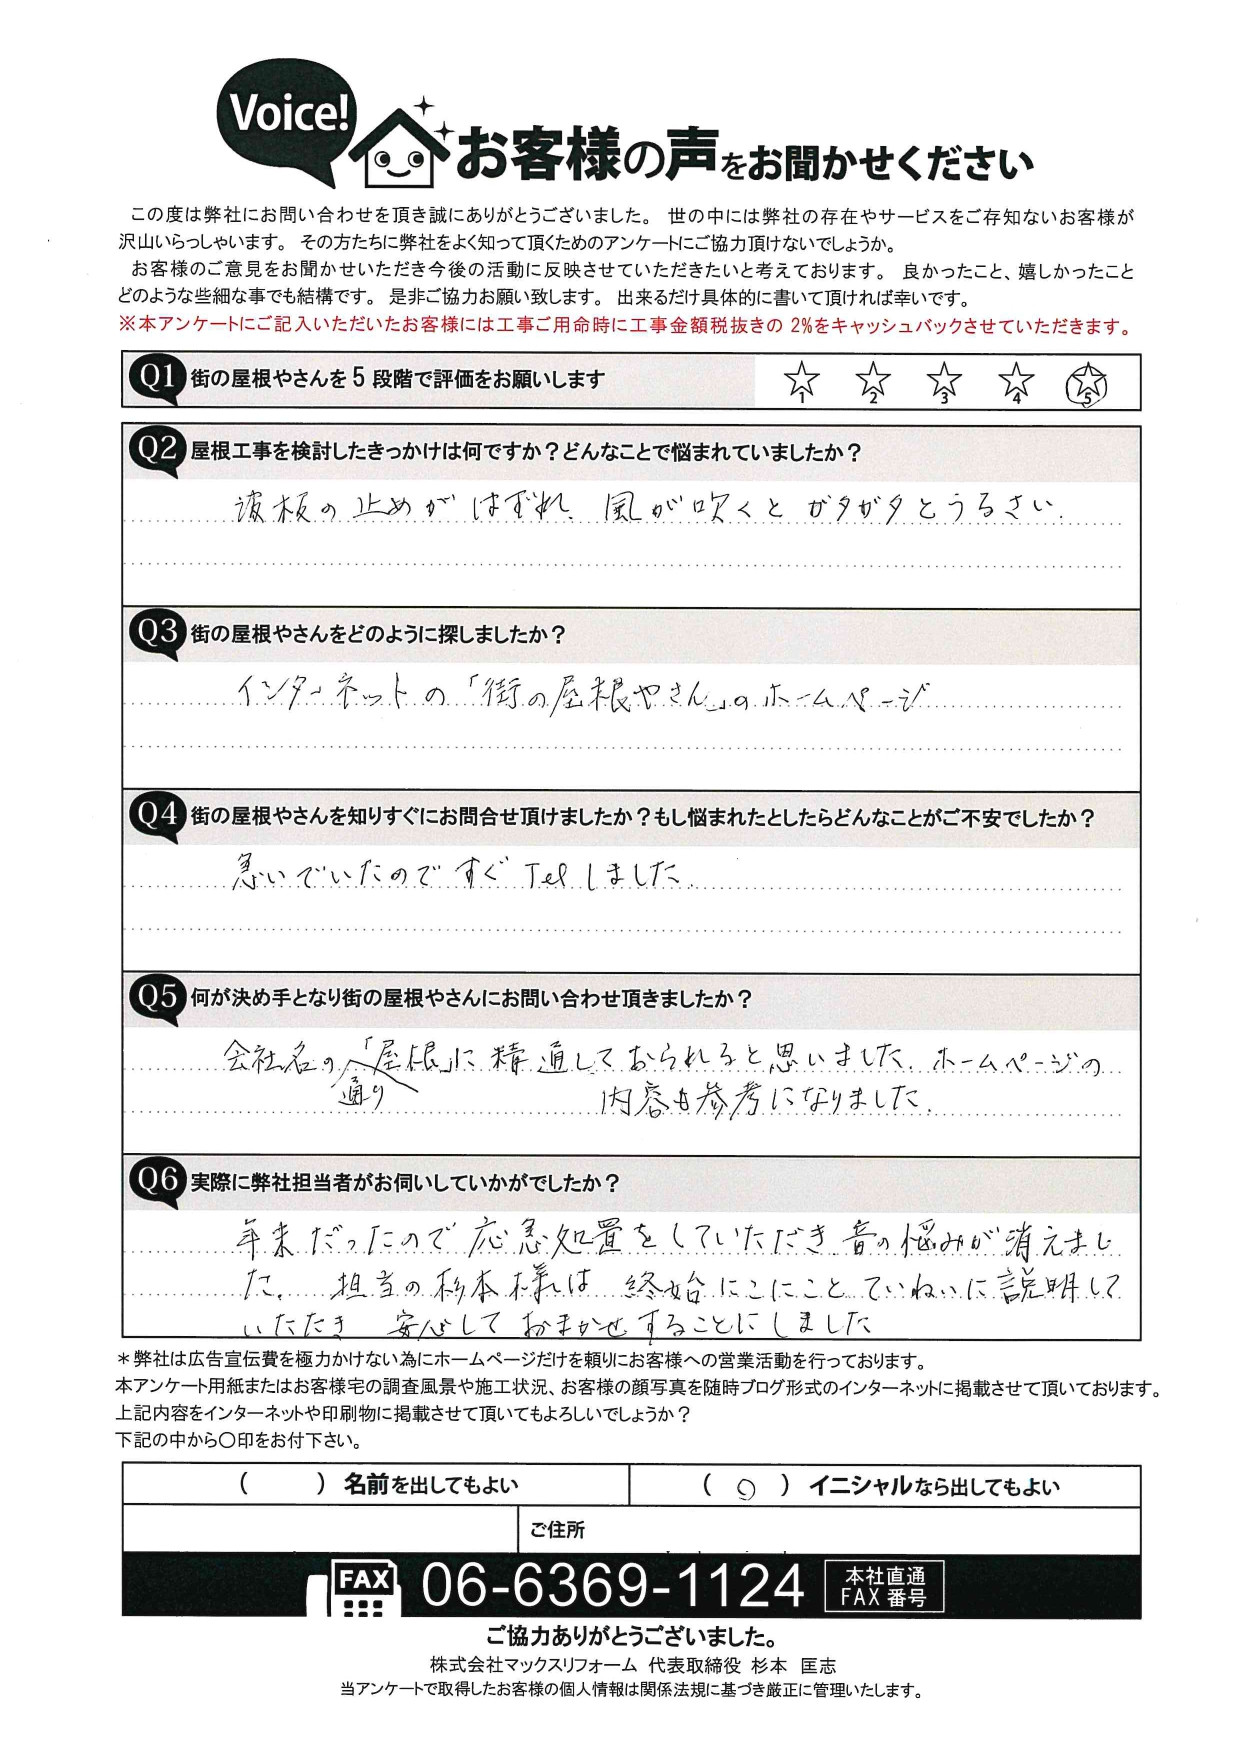 Voice!
お客様の声をお聞かせください
この度は弊社にお問い合わせを頂き誠にありがとうございました。 世の中には弊社の存在やサービスをご存知ないお客様が
沢山いらっしゃいます。 その方たちに弊社をよく知って頂くためのアンケートにご協力頂けないでしょうか。
お客様のご意見をお聞かせいただき今後の活動に反映させていただきたいと考えております。 良かったこと、嬉しかったこと
どのような些細な事でも結構です。 是非ご協力お願い致します。 出来るだけ具体的に書いて頂ければ幸いです。
※本アンケートにご記入いただいたお客様には工事ご用命時に工事金額税抜きの 2%をキャッシュバックさせていただきます。
Q1 街の屋根やさんを5段階で評価をお願いします 1 2 3 4 5
Q2 屋根工事を検討したきっかけは何ですか?どんなことで悩まれていましたか?
波板の止めがはずれ、風が吹くとガタガタとうるさい.
Q3 街の屋根やさんをどのように探しましたか?
インターネットの「街の屋根やさん」のホームページ
Q4 街の屋根やさんを知りすぐにお問合せ頂けましたか?もし悩まれたとしたらどんなことがご不安でしたか?
急いでいたのですぐTelしました.
Q5 何が決め手となり街の屋根やさんにお問い合わせ頂きましたか?
会社名の「屋根」に精通しておられると思いました. ホームページの
通り 内容も参考になりました.
Q6 実際に弊社担当者がお伺いしていかがでしたか?
年末だったので応急処置をしていただき音の悩みが消えまし
た. 担当の杉本様は 終始にこにことていねいに説明して
いただき 安心しておまかせすることにしました
*弊社は広告宣伝費を極力かけない為にホームページだけを頼りにお客様への営業活動を行っております。
本アンケート用紙またはお客様宅の調査風景や施工状況、お客様の顔写真を随時ブログ形式のインターネットに掲載させて頂いております。
上記内容をインターネットや印刷物に掲載させて頂いてもよろしいでしょうか?
下記の中から〇印をお付下さい。
( ) 名前を出してもよい ( ○ ) イニシャルなら出してもよい
ご住所
FAX 06-6369-1124 本社直通
FAX 番号
ご協力ありがとうございました。
株式会社マックスリフォーム 代表取締役 杉本 匡志
当アンケートで取得したお客様の個人情報は関係法規に基づき厳正に管理いたします。